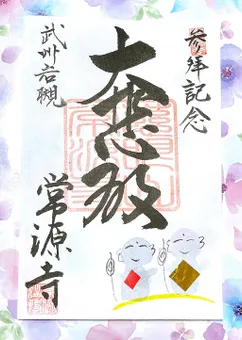 参拝記念
大悲殿
武州岩槻
常源寺